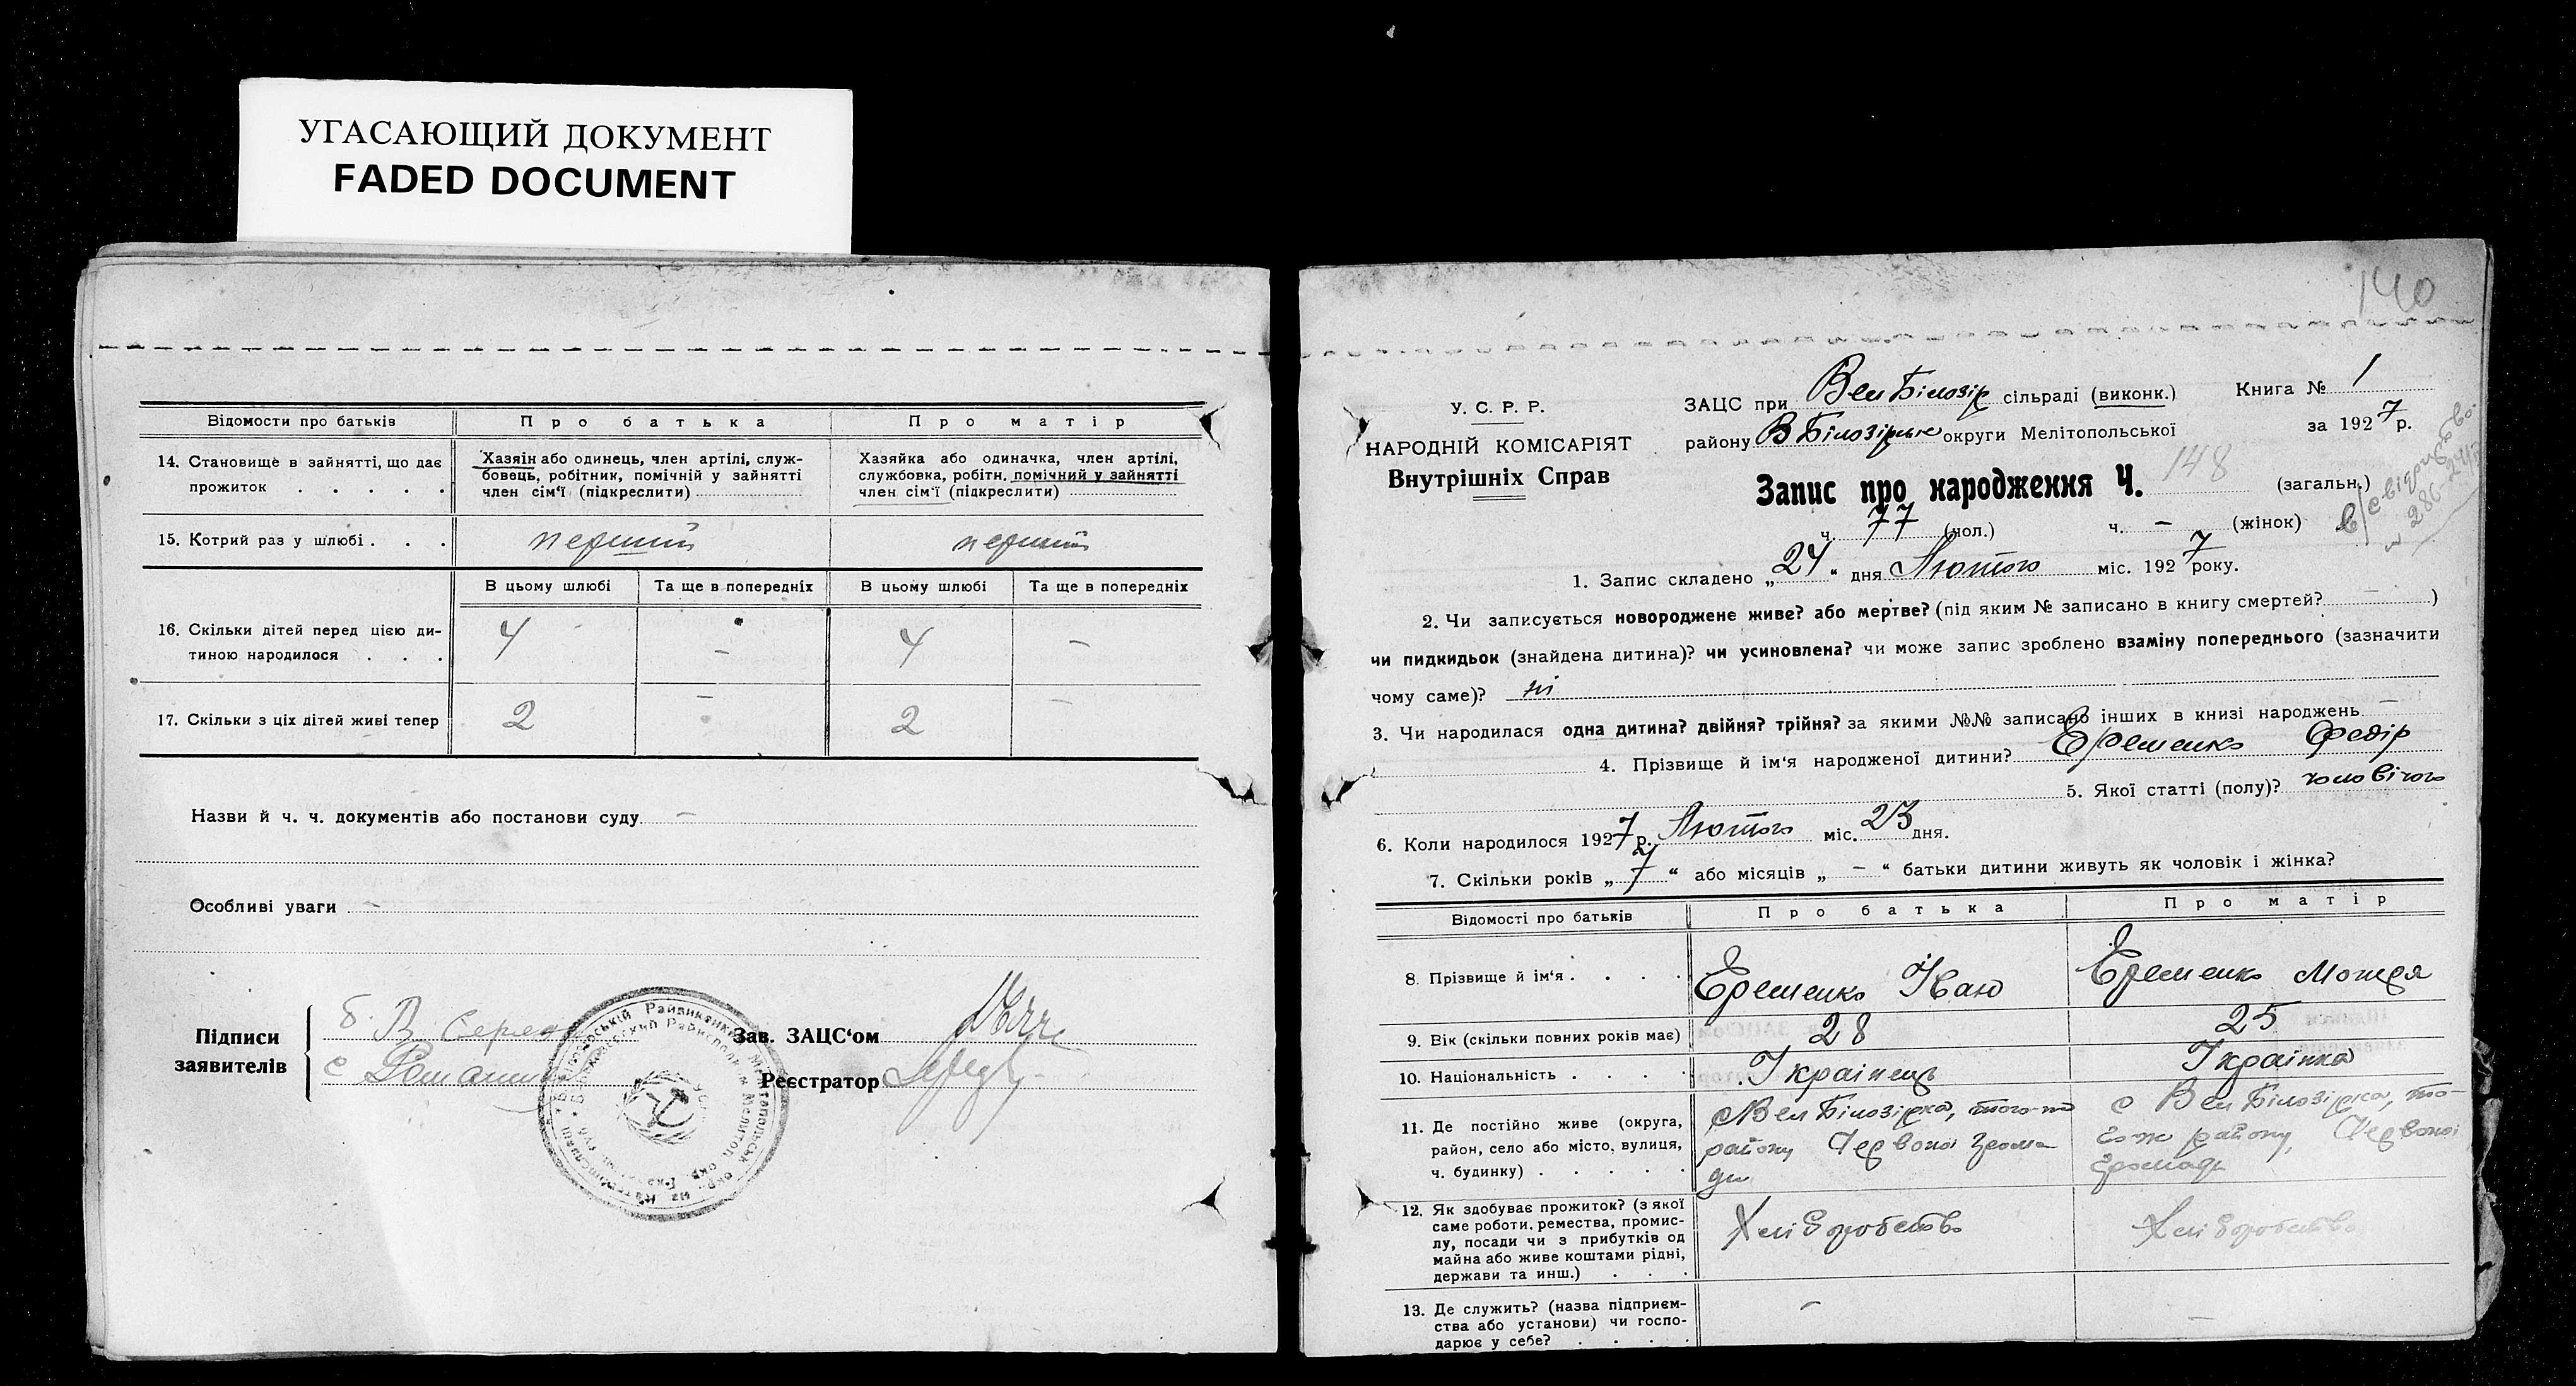 УГАСАЮЩИЙ ДОКУМЕНТ
FADED DOCUMENT
Відомости про батьків Про батька Про матір
14. Становище в зайнятті, що дає прожиток . . . . .
Хазяін або одинець, член артілі, служ-
бовець, робітник, помічній у зайнятті
член сім'ї (підкреслити)
Хазяйка або одиначка, член артілі,
службовка, робітн. помічний у зайнятті
член сім'ї (підкреслити)
15. Котрий раз у шлюбі . . . перший перший
В цьому шлюбі Та ще в попередніх В цьому шлюбі Та ще в попередніх
16. Скільки дітей перед цією ди-
тиною народилося . . . 4 – 4 –
17. Скільки з ціх дітей живі тепер 2 – 2 –
Назви й ч. ч. документів або постанови суду –
Особливі уваги –
Підписи
заявителів
Зав. ЗАЦС'ом
Реєстратор
140
У. С. Р. Р.
НАРОДНІЙ КОМІСАРІЯТ
Внутрішніх Справ
ЗАЦС при Вел Білозір сільраді (виконк.) Книга № 1
району В Білозірське округи Мелітопольської за 1927 р.
Запис про народження Ч. 148 (загальн.)
ч. 77 (чол.) ч. – (жінок)
1. Запис складено „24“ дня Лютого міс. 1927 року.
2. Чи записується новороджене живе? або мертве? (під яким № записано в книгу смертей? – )
чи пидкидьок (знайдена дитина)? чи усиновлена? чи може запис зроблено взаміну попереднього (зазначити
чому саме)? ні
3. Чи народилася одна дитина? двійня? трійня? за якими №№ записано інших в книзі народжень –
4. Прізвище й ім'я народженої дитини? Єременко Федір
5. Якої статті (полу)? чоловічого
6. Коли народилося 1927 р. Лютого міс. 23 дня.
7. Скільки років „7“ або місяців „ – “ батьки дитини живуть як чоловік і жінка?
Відомості про батьків Про батька Про матір
8. Прізвище й ім'я . . . . Єременко Іван Єременко Мотря
9. Вік (скільки повних років має) 28 25
10. Національність . . . . Українець Українка
11. Де постійно живе (округа,
район, село або місто, вулиця,
ч. будинку) . . . . .
с Вел Білозірка, того-ж
району Червоної Грома
ди
с Вел Білозірка, то-
го ж району, Червоної
Громади
12. Як здобуває прожиток? (з якої
саме роботи, ремества, промис-
лу, посади чи з прибутків од
майна або живе коштами рідні,
держави та инш.) . . .
Хліборобство Хліборобство
13. Де служить? (назва підприєм-
ства або установи) чи госпо-
дарює у себе? . . . . – –